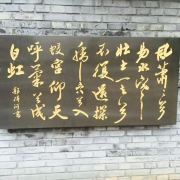 風蕭蕭兮
易水寒
壮士一去兮
不復還探
虎穴兮入
蛟宫仰天
呼氣兮成
白虹